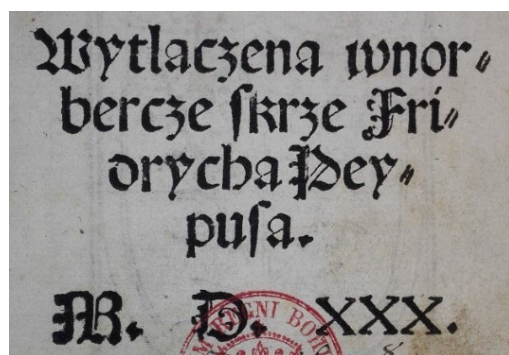 Wytlaczena wnor⸗
bercze ſkrze Fri⸗
drycha Pey⸗
puſa.
M. D. XXX.